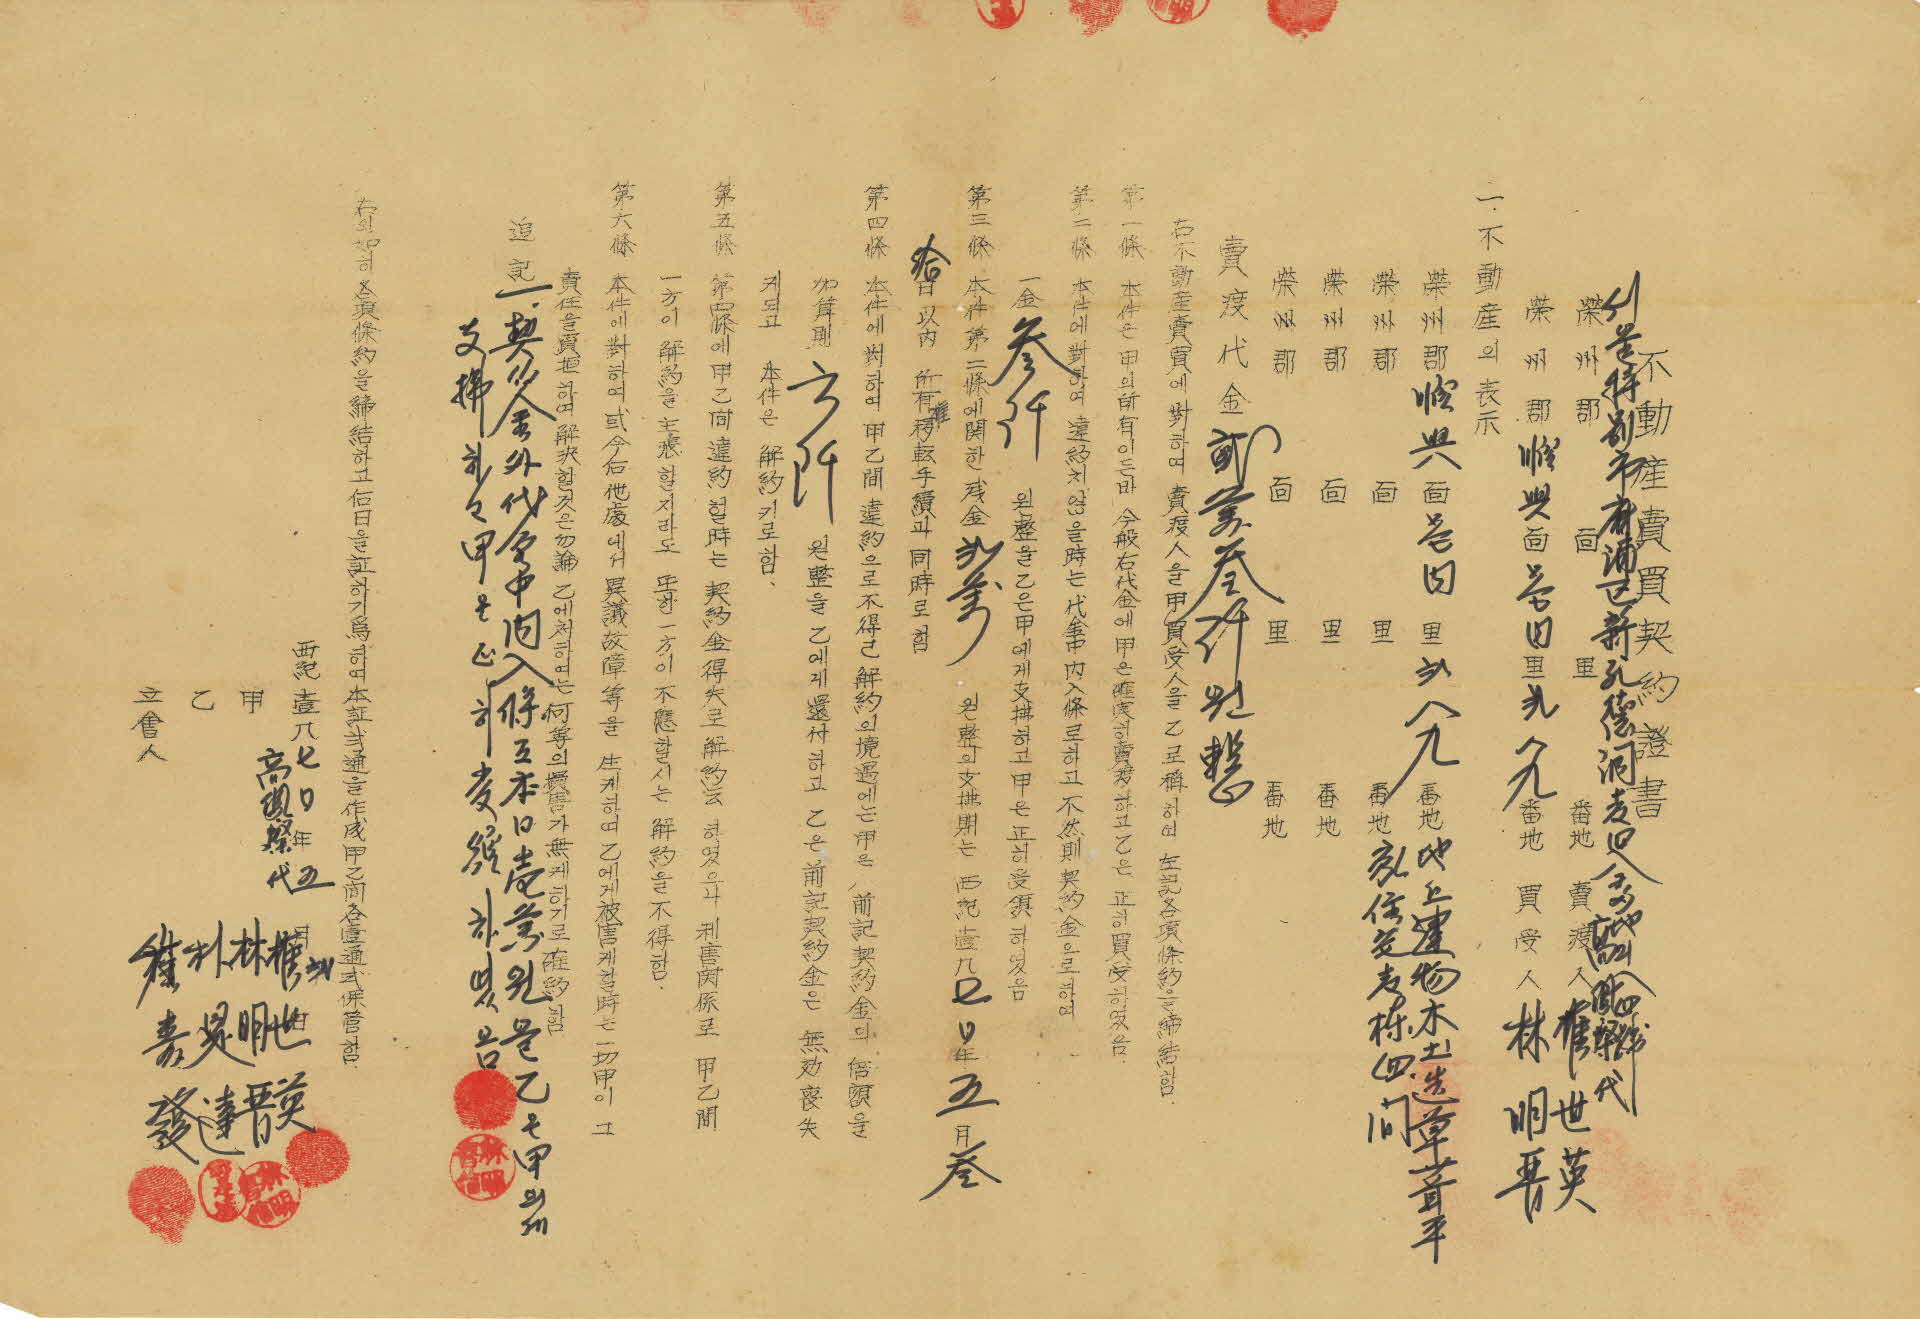 不動産賣買契約證書
榮州郡 面 里 番地 賣渡人 權世英
榮州郡 順興面 邑内里 弐八九 番地 買受人 林明晋
一.不動産의表示
榮州郡 順興面 邑内里 弐八九 番地 地上建物木土造草葺平
榮州郡 面 里 番地 家住宅壱棟 四間
榮州郡 面 里 番地
榮州郡 面 里 番地
賣渡代金 貳萬叁仟원整
右不動産賣買에對하여 賣渡人을甲 買受人을乙로稱하여 左記各項條約을締結함.
第一條 本件은甲의所有이든바 今般右代金에甲은確実히賣渡하고乙은正히買受하였음.
第二條 本件에對하여違約치않을時는代金中内入條로하고不然則契約金으로하여
一金 叁仟 원整을乙은甲에게支拂하고甲은正히受領하였음
第三條 本件第二條에関한残金 弐萬 원整의支拂期는西紀壹九七〇年五月叁
拾日以内 所有権移転手續과同時로함
第四條 本件에對하여甲乙間違約으로不得已解約의境遇에는甲은前記契約金의倍額을
加算則 六阡 원整을乙에게還付하고乙은前記契約金은無効喪失
키되고 本件은解約키로함.
第五條 第四條에甲乙间違約할時는契約金得失로解約云하였으나利害関係로甲乙間
一方이解約을主張할지라도또한一方이不應할시는解約을不得함.
第六條 本件에對하여或今后他處에서異議故障等을生케하여乙에게被害케할時는一切甲이그
責任을負担하여解決할것은勿論乙에처하여는何等의損害가無케하기로確約함
追記 一.契約金外代金中内入條로本日壱萬원을乙은甲의게
支拂하고甲은正히受領하였음
右와如히各項條約을締結하고后日을証하기爲하여本証弐通을作成甲乙间各壹通式保管함.
西紀壹九七〇年五月 日
高鳳祭代
甲 權世英
乙 林明晋
立會人 朴晃達